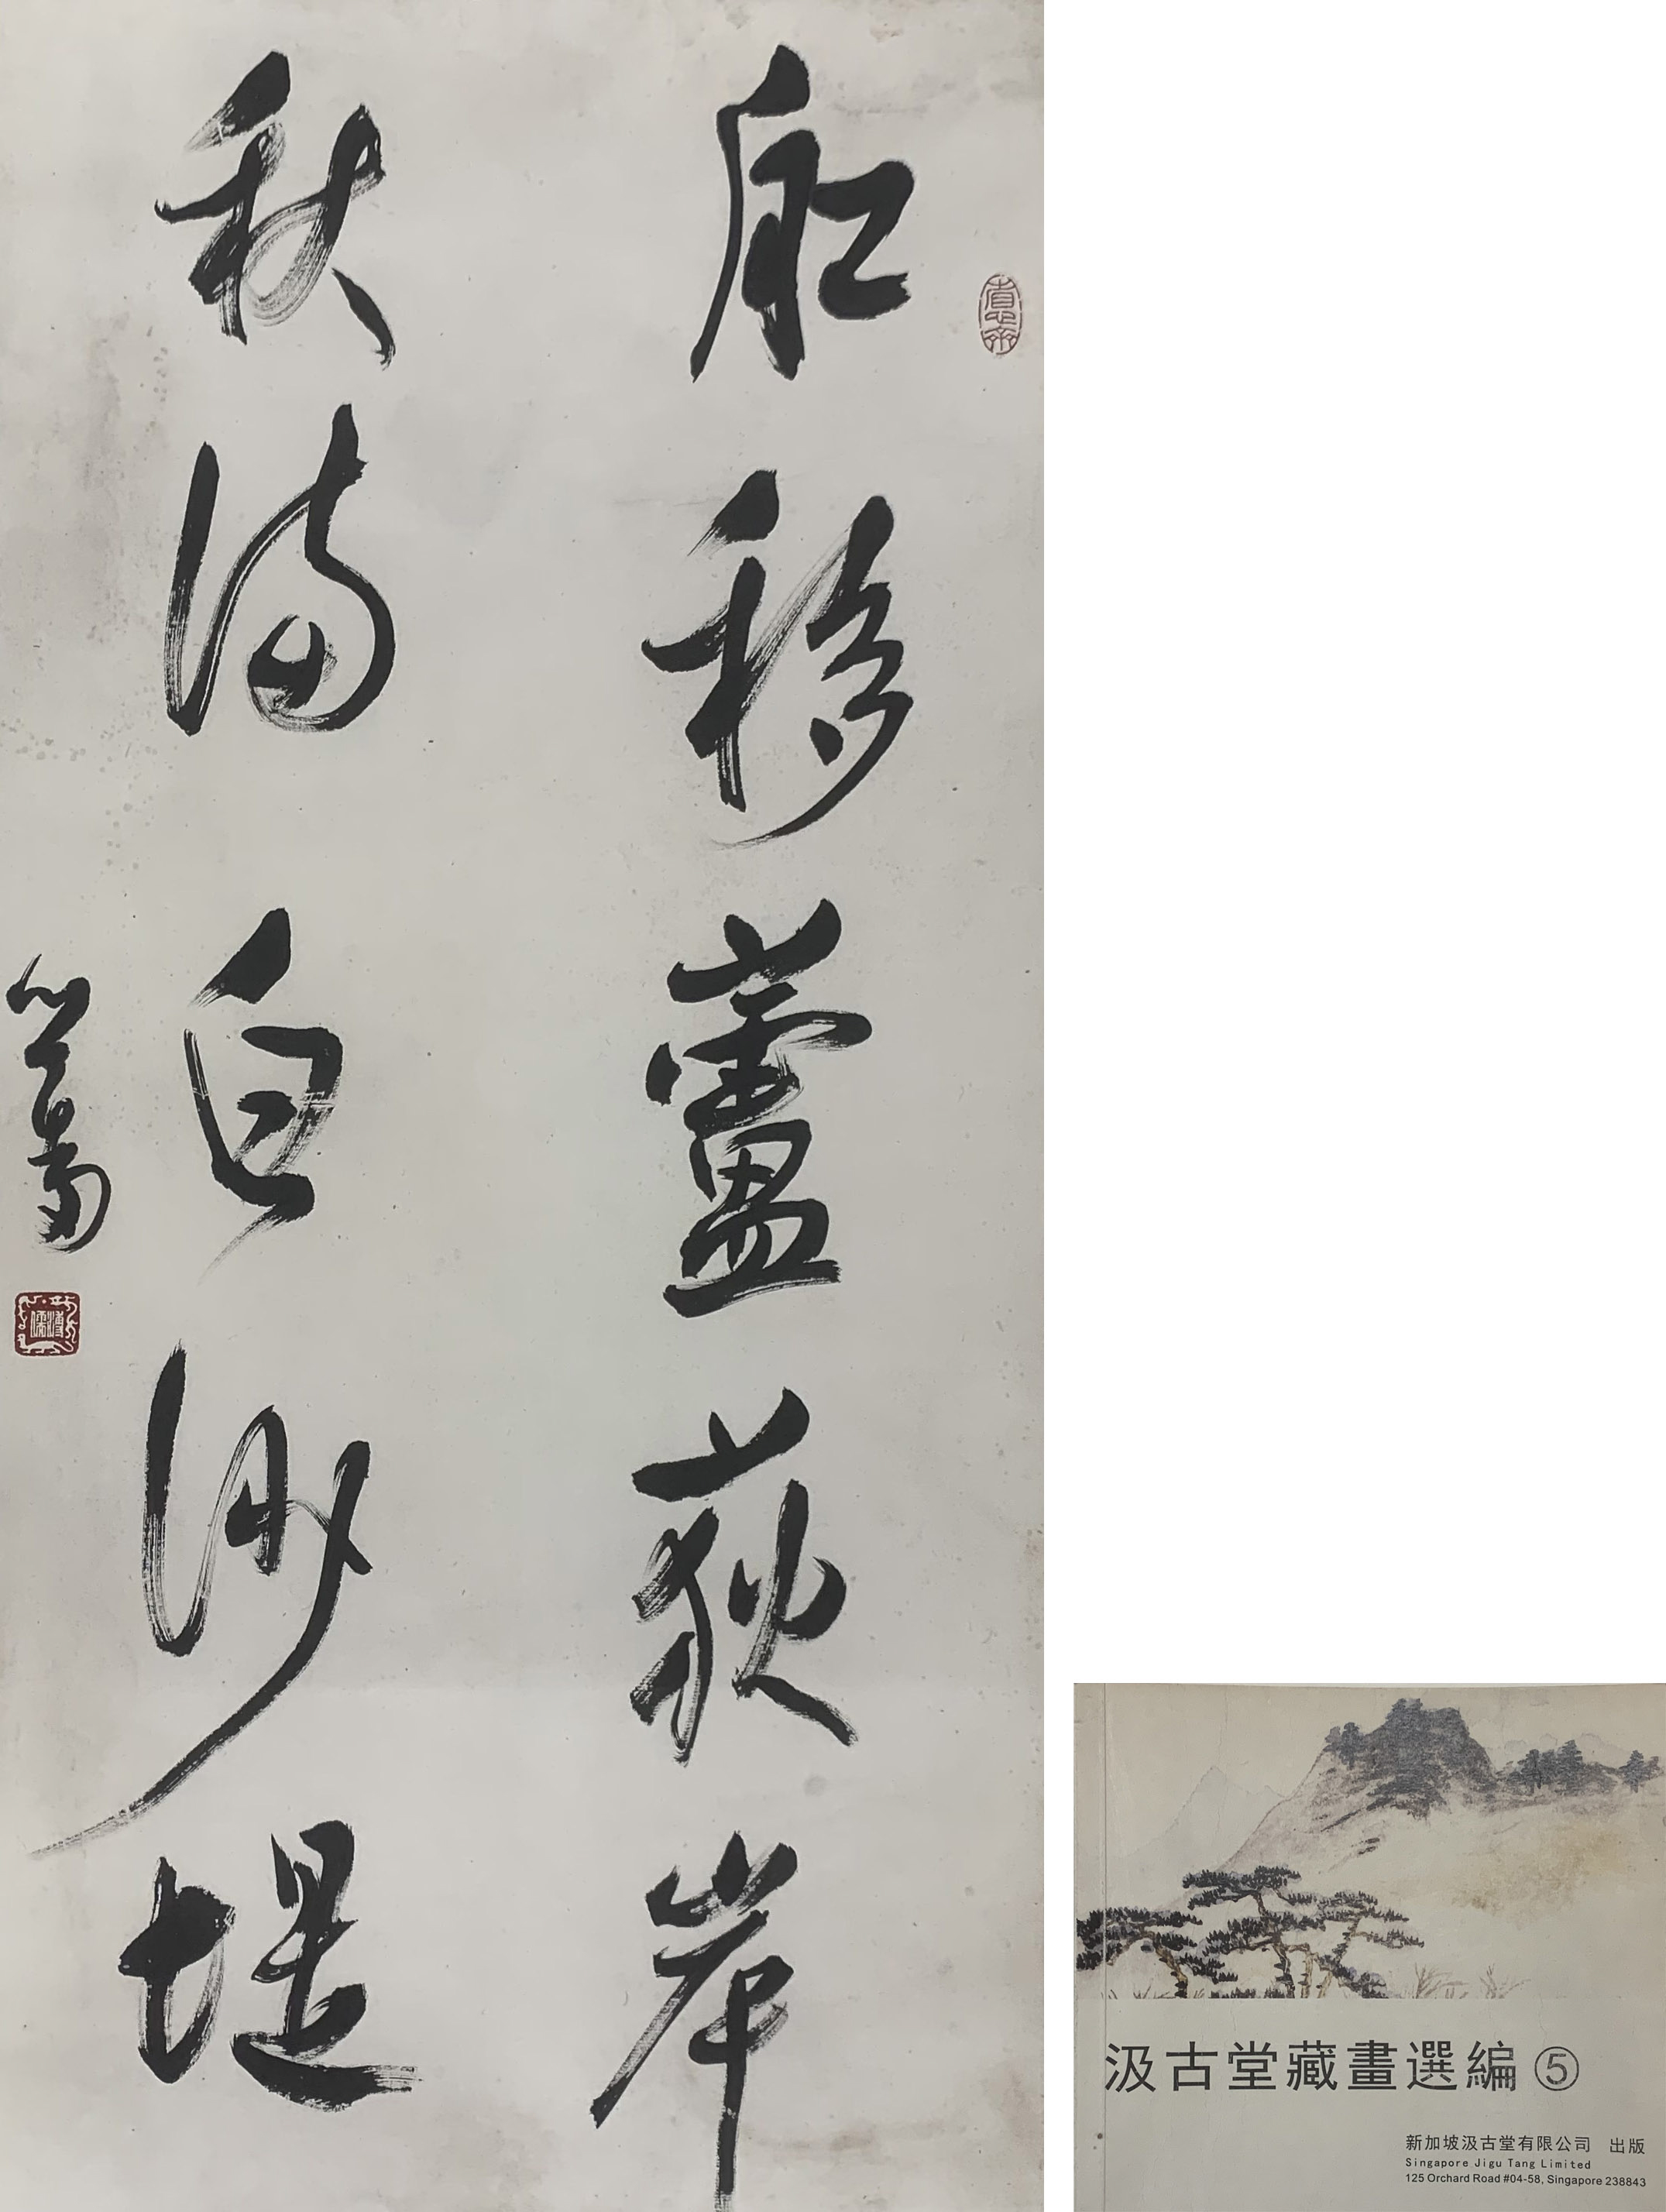 舡移蘆荻岸
秋滿白沙堤
心畬
溥儒
汲古堂藏畫選編⑤
新加坡汲古堂有限公司 出版
Singapore Jigu Tang Limited
125 Orchard Road #04-58, Singapore 238843